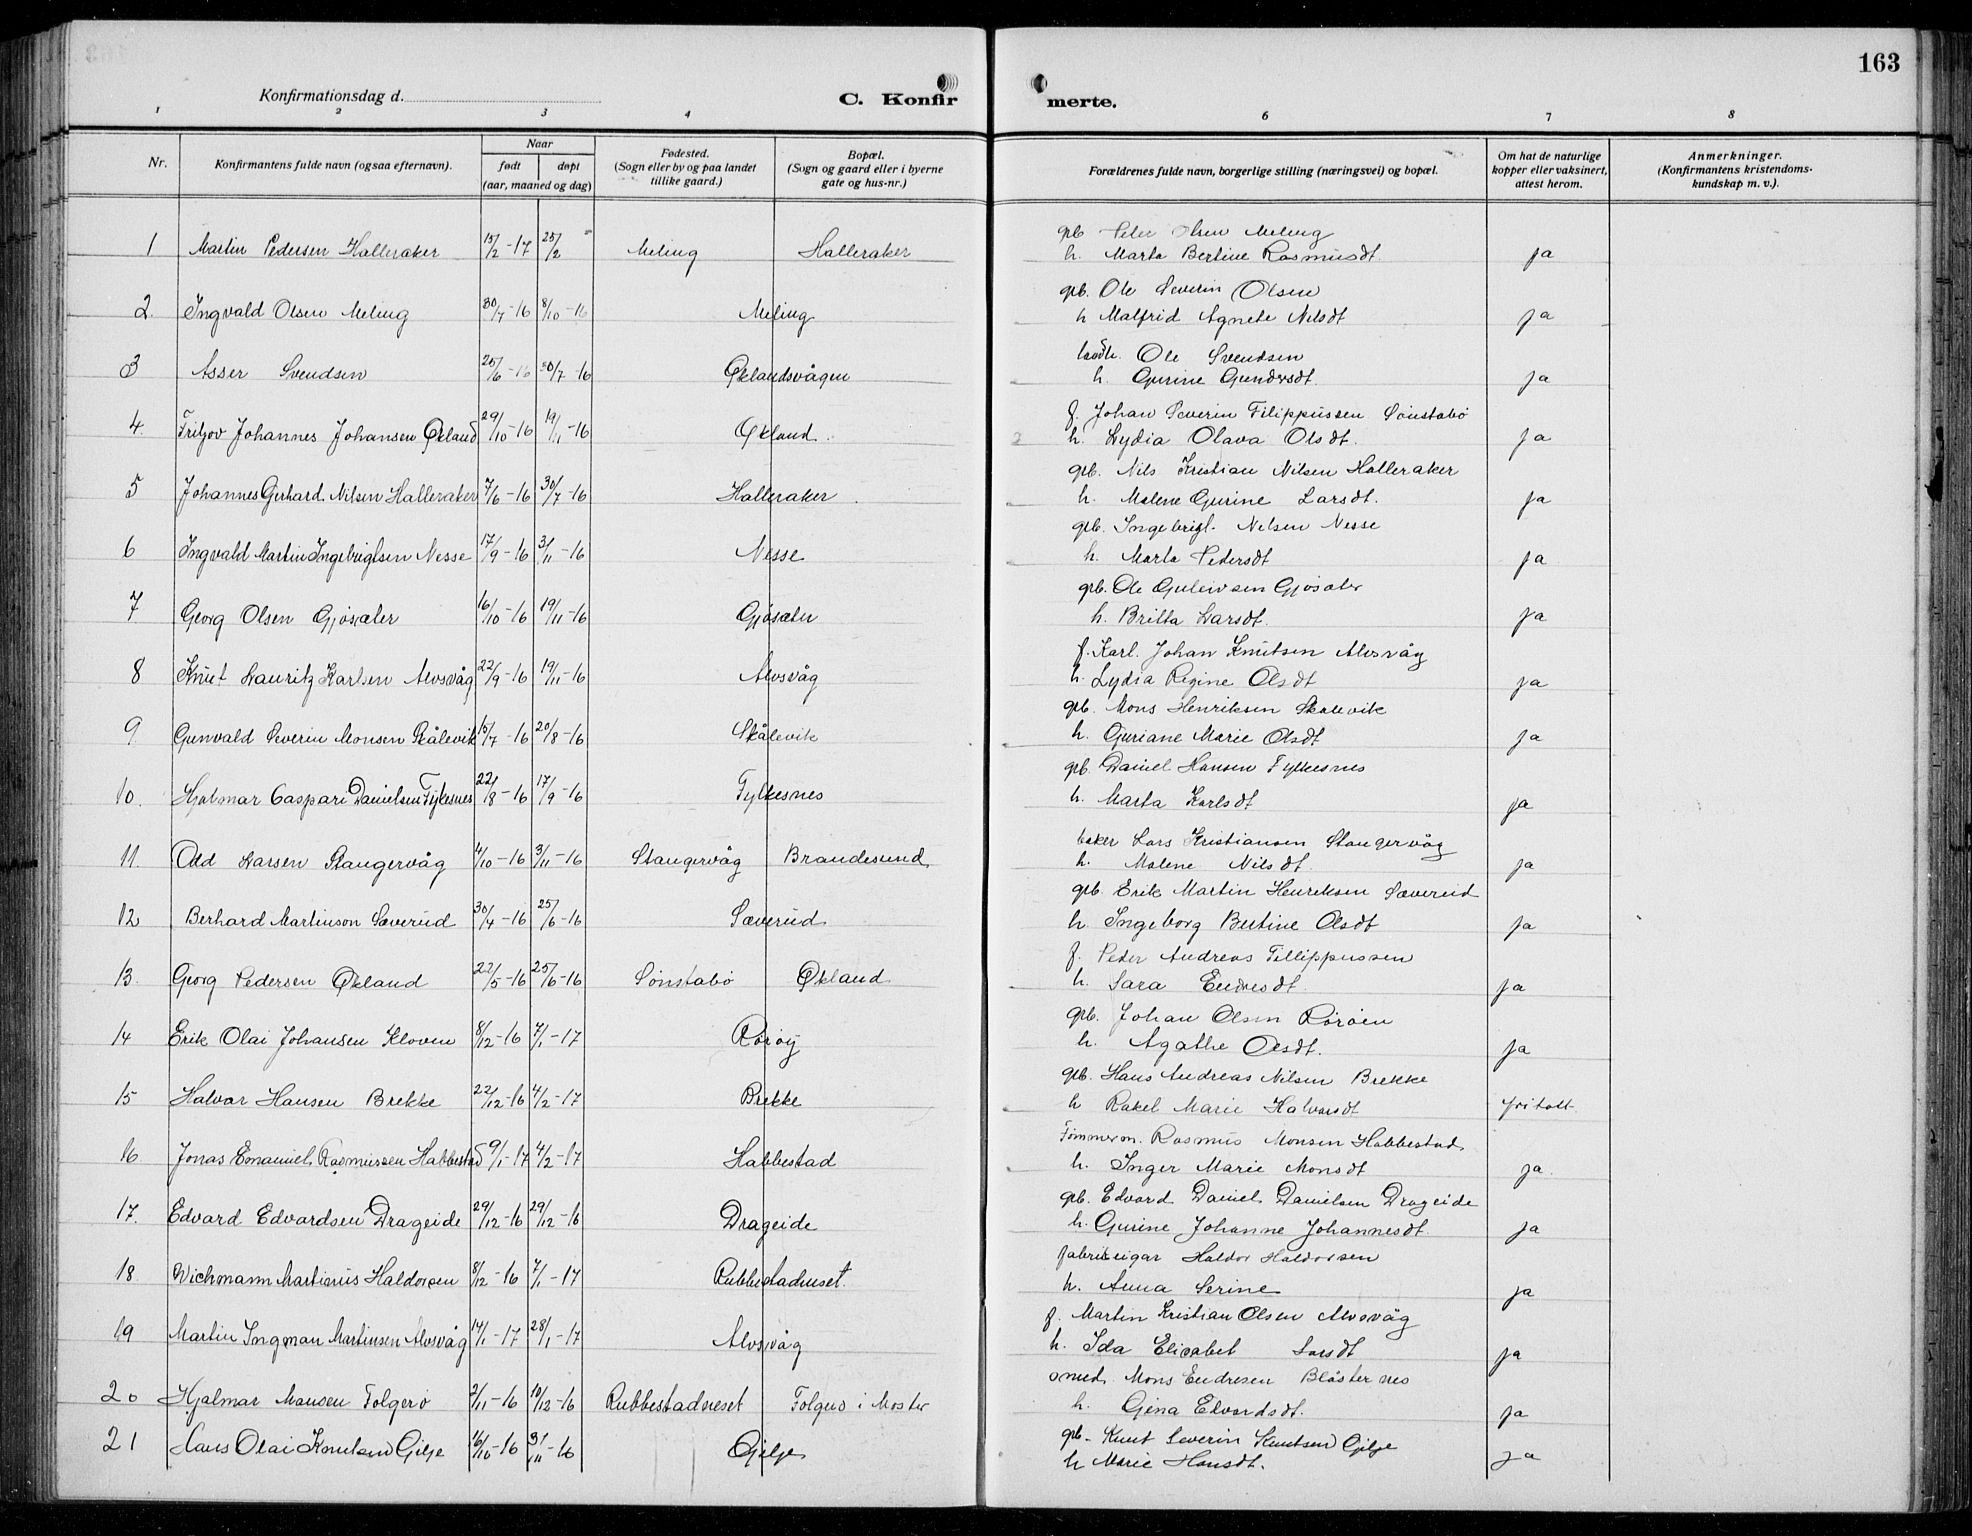 163
Konfirmationsdag d.
C. Konfirmerte.
1 2 3 4 6 7 8
Nr.
Konfirmantens fulde navn (ogsaa efternavn).
Naar
født døpt
(aar, maaned og dag)
Fødested.
(Sogn eller by og paa landet
tillike gaard.)
Bopæl.
(Sogn og gaard eller i byerne
gate og hus-nr.)
Forældrenes fulde navn, borgerlige stilling (næringsvei) og bopæl.
Om hat de naturlige
kopper eller vaksinert,
attest herom.
Anmerkninger.
(Konfirmantens kristendoms-
kundskap m. v.).
gb. Peter Olsen Meling
1 Martin Pedersen Halleraker 15/2-17 25/2 Meling Halleraker h. Marta Bertine Rasmusdt. ja
gb. Ole Severin Olsen
2. Ingvald Olsen Meling 30/7-16 8/10-16 Meling h Malfrid Agnete Nilsdt ja
Ole Svendsen
3 Asser Svendsen 25/6-16 30/7-16 Øklandsvågen h. Gurine Gundersdt. ja
f. Johan Severin Filippussen Sönstabö
4. Fritjov Johannes Johansen Økland 29/10-16 19/11-16 Økland h. Lydia Olava Olsdt. ja
gb. Nils Kristian Nilsen Halleraker
5 Johannes Gerhard Nilsen Halleraker 7/6-16 30/7-16 Halleraker h. Malene Gurine Larsdt. ja
gb. Ingebrigt Nilsen Nesse
6 Ingvald Martin Ingebrigtsen Nesse 17/9-16 3/11-16 Nesse h. Marta Pedersdt ja
gb. Ole Guleivsen Gjøsæter
7 Georg Olsen Gjøsæter 16/10-16 19/11-16 Gjøsæter h. Britta Larsdt. ja
f. Karl Johan Knutsen Alvsvåg
8 Knut Lauritz Karlsen Alvsvåg 22/9-16 19/11-16 Alvsvåg h. Lydia Regine Olsdt ja
gb. Mons Henriksen Skålevik
9 Gunvald Severin Monsen Skålevik 15/7-16 20/8-16 Skålevik h. Guriane Marie Olsdt ja
gb. Daniel Hansen Fylkesnes
10. Hjalmar Caspari Danielsen Fylkesnes 22/8-16 17/9-16 Fylkesnes h. Marta Karlsdt ja
baker Lars Kristiansen Stangervåg
11. Odd Larsen Stangervåg 4/10-16 3/11-16 Stangervåg Brandesund h. Malene Nilsdt. ja
gb. Erik Martin Henriksen Sæverud
12 Berhard Martinson Sæverud 30/4-16 25/6-16 Sæverud h. Ingeborg Bertine Olsdt ja
f. Peder Andreas Fillippussen
13. Georg Pedersen Økland 22/5-16 25/6-16 Sönstabö Økland h. Sara Endresdt. ja
gb. Johan Olsen Rörøen
14 Erik Olai Johansen Kloven 8/12-16 7/1-17 Rörøy h. Agathe Olsdt. ja
gb. Hans Andreas Nilsen Brekke
15 Halvar Hansen Brekke 22/12-16 4/2-17 Brekke h Rakel Marie Halvorsdt fritatt
Tømmerm. Rasmus Monsen Habbestad
16. Jonas Emanuel Rasmussen Habbestad 9/1-17 4/2-17 Habbestad h. Inger Marie Monsdt ja.
gb. Edvard Daniel Danielsen Drageide
17. Edvard Edvardsen Drageide 29/12-16 29/12-16 Drageide h. Gurine Johanne Johannesdt. ja
fabrikeigar Haldor Haldorsen
18. Wichmann Martinus Haldorsen 8/12-16 7/1-17 Rubbestadneset. h. Anna Serine ja
f. Martin Kristian Olsen Alvsvåg
19 Martin Ingman Martinsen Alvsvåg 14/1-17 28/1-17 Alvsvåg h. Ida Elisabet Larsdt ja
smed. Mons Endresen Blåsternes
20 Hjalmar Monsen Folgerö 2/11-16 10/12-16 Rubbestadneset Folgerö i Moster h. Gina Edvardsdt. ja
gb. Knut Severin Knutsen Gilje
21 Hans Olai Knutsen Gilje 16/10-16 3/11-16 Gilje h Marie Hansdt. ja